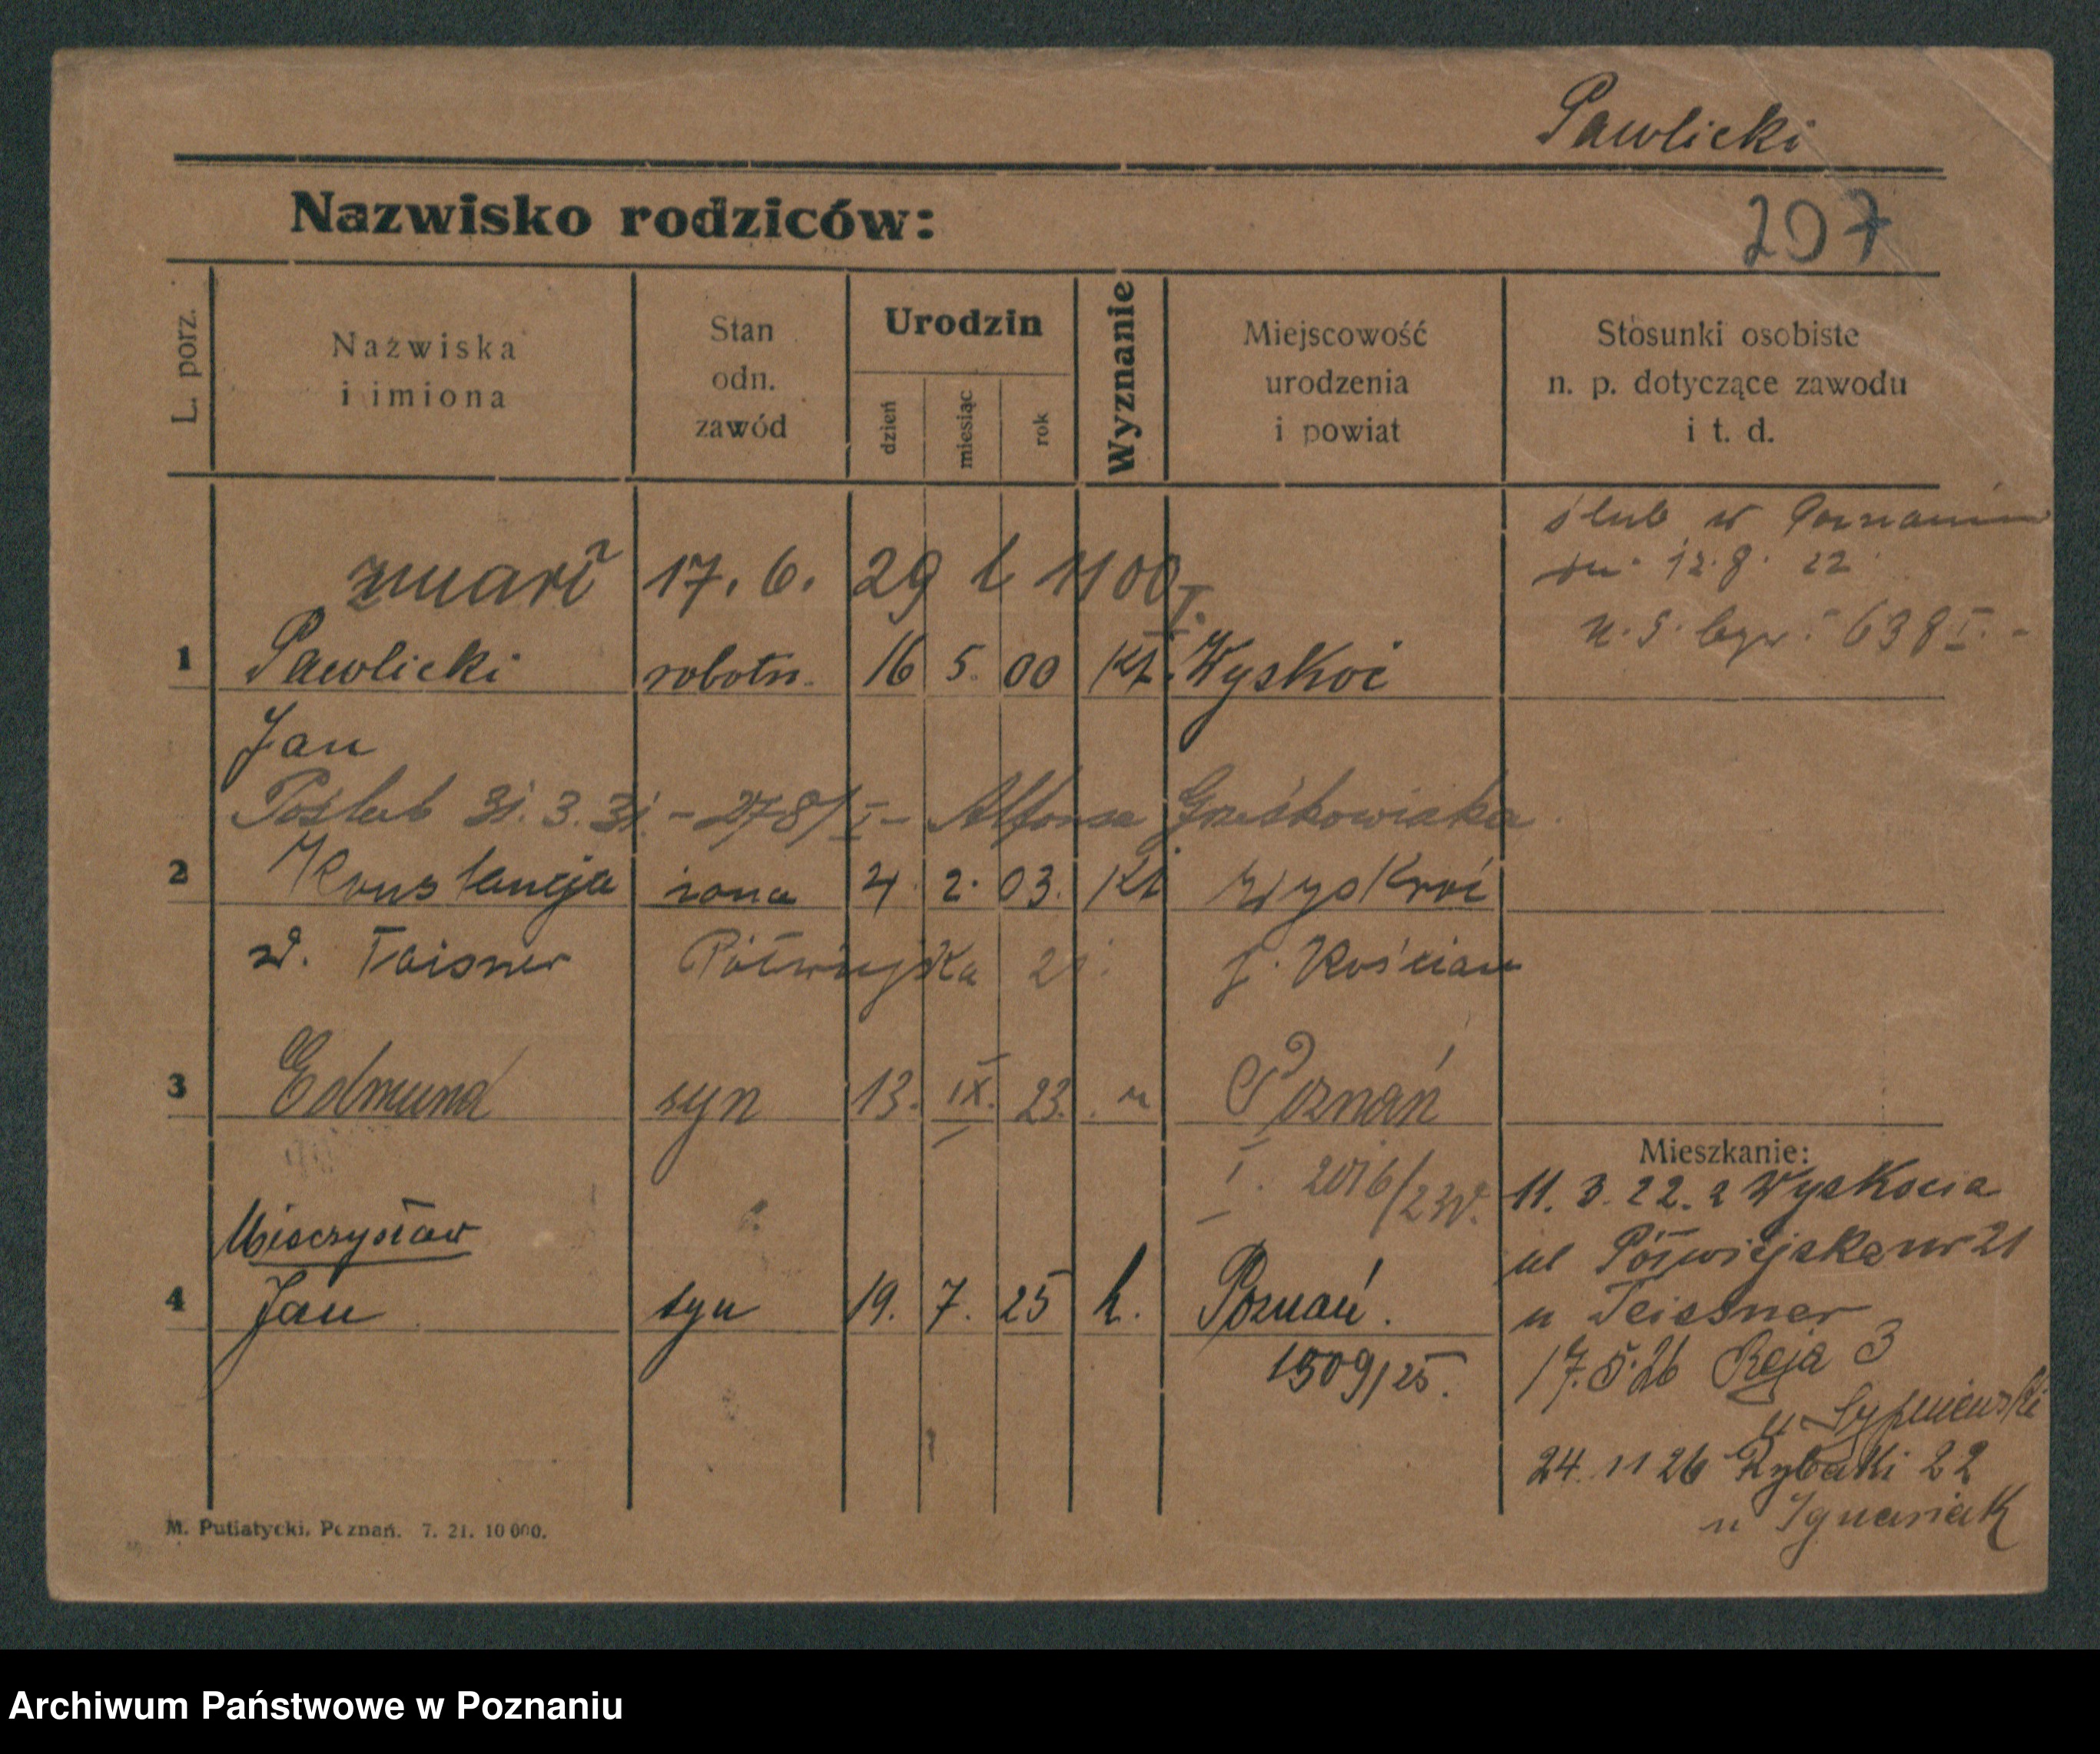 Pawlicki
Nazwisko rodziców:
207
L. porz.
Nazwiska
i imiona
Stan
odn.
zawód
Urodzin
dzień
miesiąc
rok
Wyznanie
Miejscowość
urodzenia
i powiat
Stosunki osobiste
n. p. dotyczące zawodu
i t. d.
ślub w Poznaniu
dn. 12. 8. 22
638 I. -
zmarł 17. 6. 29 l 1100 I.
1 Pawlicki robotn. 16 5. 00 kt. Wyskoć
Jan
Poślub 31. 3. 31. - 278/I - Alfonsa Grześkowiaka
2 Konstancja żona 4. 2. 03. kt Wyskoć
z d. Taisner Półwiejska 21. p. Kościan
3 Edmund syn 13. IX. 23. Poznań
I. 2016/23
Mieczysław
4 Jan syn 19. 7. 25 k. Poznań.
1509/25.
Mieszkanie:
11. 3. 22. z Wyskocia
ul Półwiejska nr 21
u Teissner
17. 5. 26 Reja 3
u Sypniewski
24. 11 26 Rybaki 22
u Ignasiak
M. Putiatycki, Poznań. 7. 21. 10 000.
Archiwum Państwowe w Poznaniu